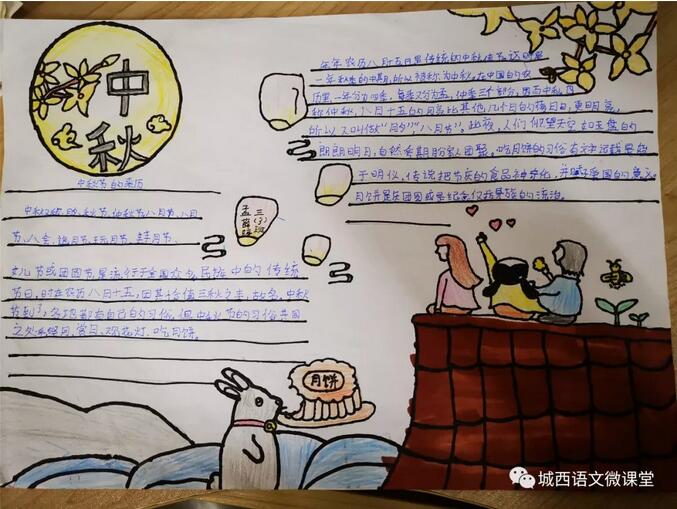 中
秋
中秋节的来历
中秋又称月夕、秋节、仲秋节、八月节、八月
节、八会、追月节、玩月节、拜月节、
女儿节或团圆节是流行于全国众多民族中的传统
节日,时在农历八月十五,因其恰值三秋之半,故名,中秋
节到了,各地都有自己的习俗,但中秋节的习俗共同
之处赏月、观花灯、吃月饼。
三(3)班
孟
年年农历八月十五日是传统的中秋佳节这时是
一年秋季的中期,所以被称为中秋。在中国的农
历里,一年分为四季,每季又分为孟、仲、季三个部分,因而中秋也
称仲秋,八月十五的月亮比其他几个月的满月更圆,更明亮,
所以又叫做“月夕”“八月节”。此夜,人们仰望天空如玉盘的
朗朗明月,自然会期盼家人团聚。吃月饼的习俗
月饼
城西语文微课堂